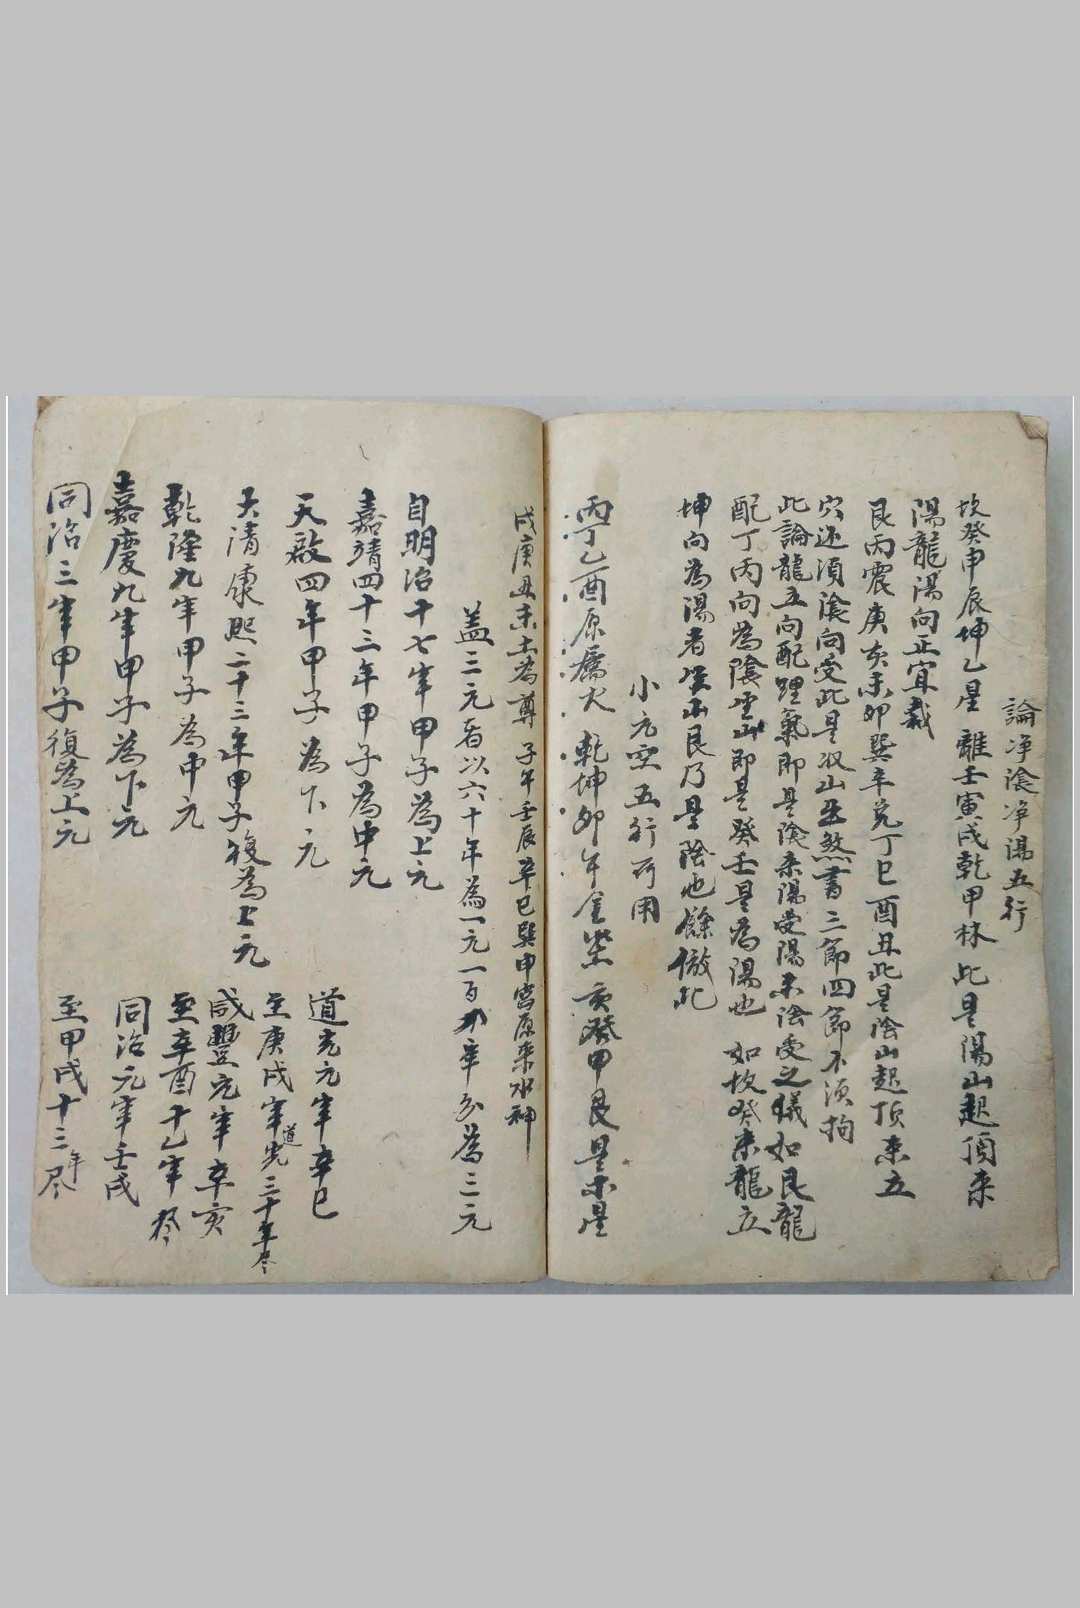 論净陰净陽五行
坎癸申辰坤乙星 離壬寅戌乾甲林 此是陽山起頂来
陽龍陽向正宜裁
艮丙震庚亥未卯巽辛兌丁巳酉丑此是陰山起頂来立
穴还須陰向受此是収山出煞書三節四節不須拘
此論龍立向配理氣即是陰来陽受陽来陰受之儀如艮龍
配丁丙向為陰坐山即是癸壬是為陽也 如坎癸来龍立
坤向為陽者坐山艮乃是陰也餘倣此
小元空五行可用
丙丁乙酉原属火 乾坤卯午金 亥癸甲艮是木星
戌庚丑未土為尊 子午壬辰辛巳巽申寅原来水神
盖三元者以六十年為一元一百八年分為三元
自明治十七年甲子為上元
嘉靖四十三年甲子為中元
天啟四年甲子為下元
大清康熙二十三年甲子復為上元
乾隆九年甲子為中元
嘉慶九年甲子為下元
同治三年甲子復為上元
道光元年辛巳
至庚戌年道光三十年尽
咸豐元年辛亥
至辛酉十一年尽
同治元年壬戌
至甲戌十三年尽